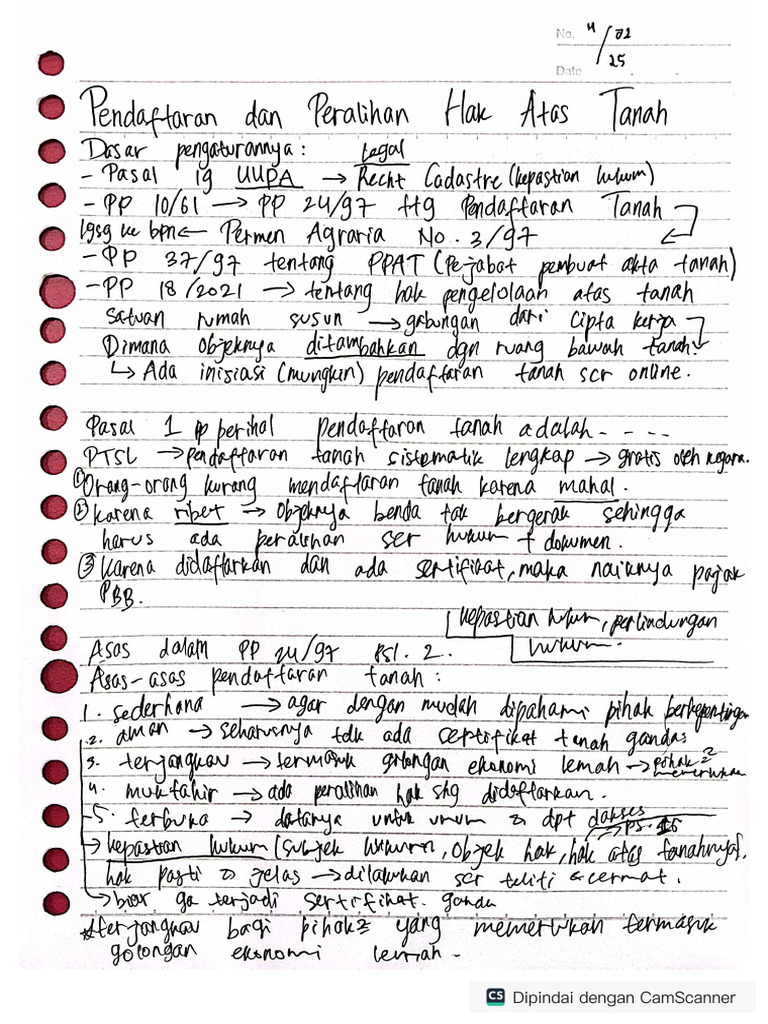 No. 4/02
Date 25
Pendaftaran dan Peralihan Hak Atas Tanah
Dasar pengaturannya: Legal
- Pasal 19 UUPA → Recht Cadastre (kepastian hukum)
- PP 10/61 → PP 24/97 ttg Pendaftaran Tanah
lgsg ke bpn ← Permen Agraria No. 3/97
- PP 37/97 tentang PPAT (Pejabat pembuat akta tanah)
- PP 18/2021 → tentang hak pengelolaan atas tanah
satuan rumah susun → gabungan dari Cipta kerja
Dimana objeknya ditambahkan dgn ruang bawah tanah.
↳ Ada inisiasi (mungkin) pendaftaran tanah scr online.
Pasal 1 pp perihal pendaftaran tanah adalah - - - -
PTSL → pendaftaran tanah sistematik lengkap → gratis oleh negara.
① Orang-orang kurang mendaftaran tanah karena mahal.
② karena ribet → Objeknya benda tak bergerak sehingga
harus ada peralihan scr hukum + dokumen.
③ Karena didaftarkan dan ada sertifikat, maka naiknya pajak
PBB.
kepastian hukum, perlindungan
hukum.
Asas dalam PP 24/97 psl. 2.
Asas-asas pendaftaran tanah:
1. sederhana → agar dengan mudah dipahami pihak berkepentingan
2. aman → seharusnya tdk ada certifikat tanah ganda
3. terjangkau → termasuk golongan ekonomi lemah → pihak2 memerlukan
4. muktahir → ada peralihan hak shg didaftarkan.
5. terbuka → datanya untuk umum & dpt diakses
→ kepastian hukum (subjek hukum, objek hak, hak atas tanahnya).
hak pasti & jelas → dilakukan scr teliti & cermat.
→ biar ga terjadi sertifikat ganda
*terjangkau bagi pihak2 yang memerlukan termasuk
golongan ekonomi lemah.
CS Dipindai dengan CamScanner